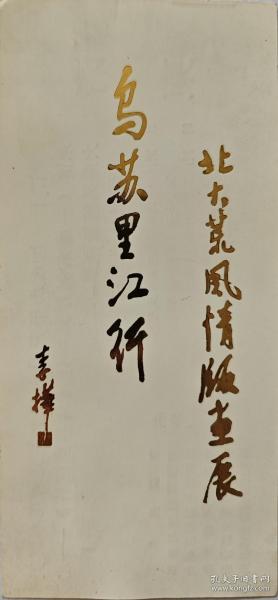 北大荒風情版画展
乌苏里江行
李桦
孔夫子旧书网
www.kongfz.com